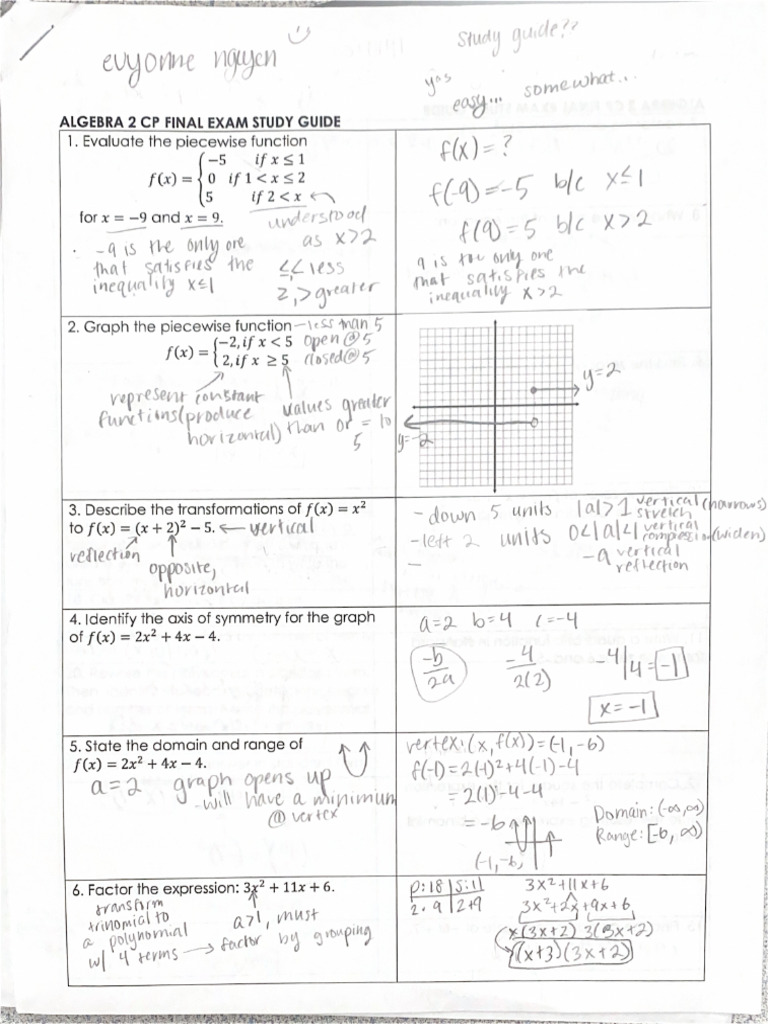 evyonne nguyen
Study guide??
yas
easy... somewhat...
ALGEBRA 2 CP FINAL EXAM STUDY GUIDE
1. Evaluate the piecewise function
f(x) = { −5 if x ≤ 1
0 if 1 < x ≤ 2
5 if 2 < x
for x = −9 and x = 9.
understood
as x>2
-9 is the only one
that satisfies the
inequality x≤1
≤,< less
≥,> greater
f(x) = ?
f(-9) = -5 b/c x≤1
f(9) = 5 b/c x>2
9 is the only one
that satisfies the
inequality x>2
2. Graph the piecewise function
f(x) = { −2, if x < 5
2, if x ≥ 5
-less than 5
open @ 5
closed @ 5
represent constant
functions (produce
horizontal)
values greater
than or = to
5
y=2
y=-2
3. Describe the transformations of f(x) = x²
to f(x) = (x + 2)² − 5. ← vertical
reflection
opposite,
horizontal
-down 5 units
-left 2 units
-
|a|>1 vertical (narrows)
stretch
0<|a|<1 vertical
compression (widen)
-a vertical
reflection
4. Identify the axis of symmetry for the graph
of f(x) = 2x² + 4x − 4.
a=2 b=4 c=-4
-b/2a -4/2(2) -4/4 = -1
x = -1
5. State the domain and range of
f(x) = 2x² + 4x − 4.
a=2 graph opens up
-will have a minimum
@ vertex
vertex: (x, f(x)) = (-1, -6)
f(-1) = 2(-1)²+4(-1)-4
= 2(1)-4-4
= -6
(-1,-6)
Domain: (-∞,∞)
Range: [-6, ∞)
6. Factor the expression: 3x² + 11x + 6.
transform
trinomial to
a polynomial
w/ 4 terms →
a>1, must
factor by grouping
p:18 s:11
2·9 2+9
3x²+11x+6
3x²+2x+9x+6
x(3x+2) 3(3x+2)
(x+3)(3x+2)